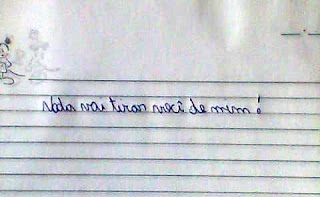 Nada vai tirar você de mim!